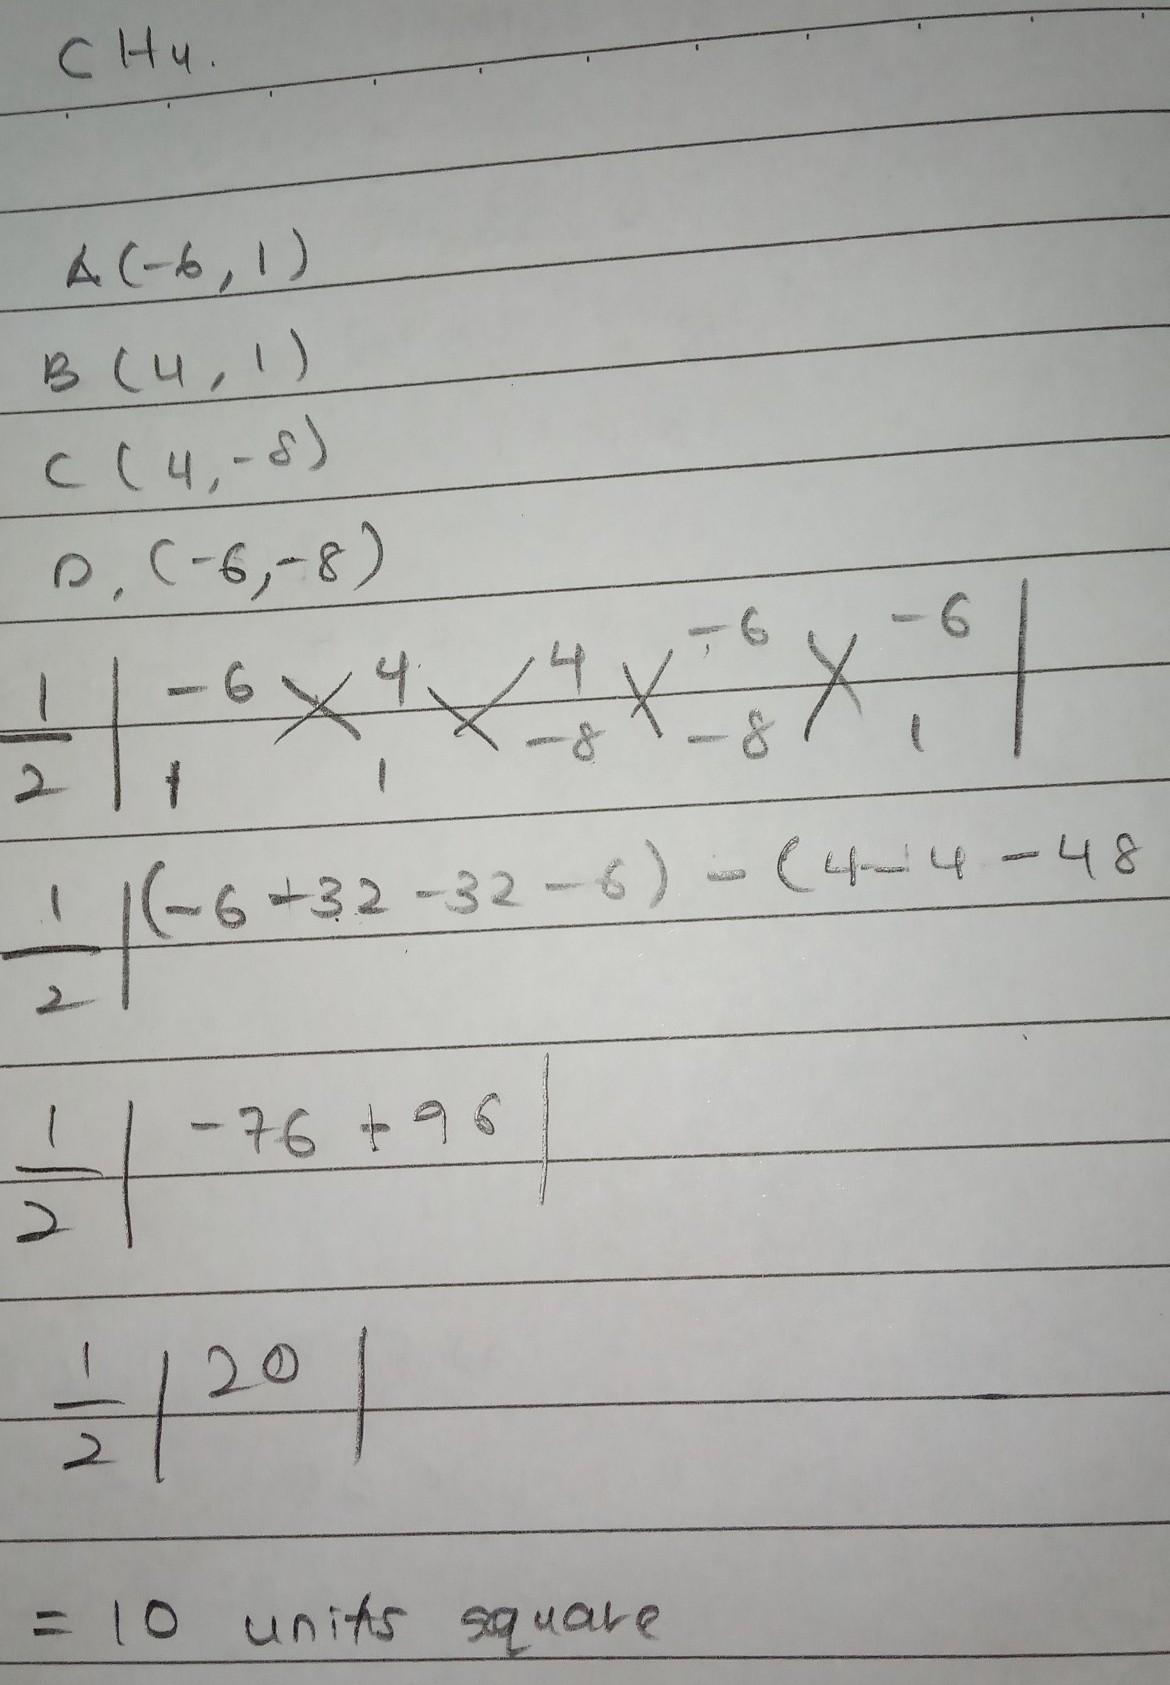 CH4.
A(-6, 1)
B (4, 1)
C (4, -8)
D. (-6, -8)
1/2 | -6 4 4 -6 -6 |
1 1 -8 -8 1
1/2 |(-6+32-32-6) - (4-4-48
1/2 | -76 + 96 |
1/2 | 20 |
= 10 units square